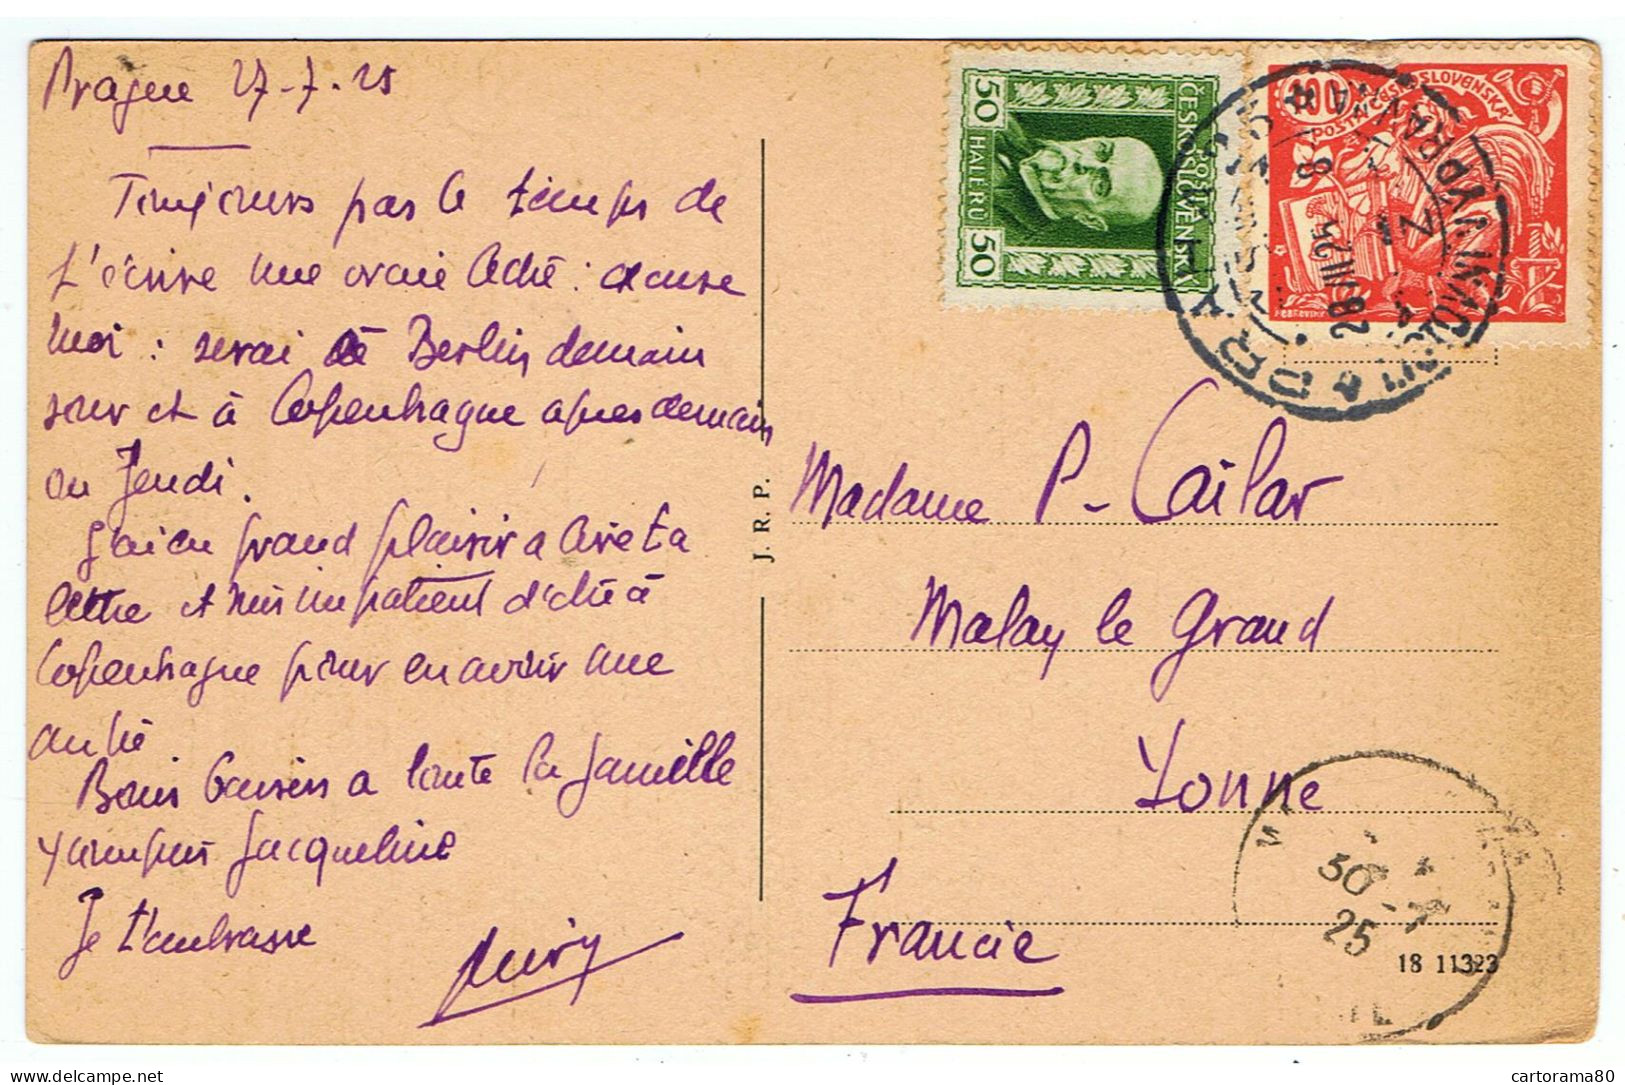 Prague 27-7-25
Toujours pas le temps de
t'écrire une vraie lettre : excuse
moi : serai à Berlin demain
soir et à Copenhague après demain
ou Jeudi.
J'ai eu grand plaisir a lire ta
lettre et suis impatient d'être à
Copenhague pour en avoir une
autre
Bons baisers a toute la famille
y compris Jacqueline
Je t'embrasse
J. R. P.
50 HALÉŘŮ 50
POŠTA
ČESKOSLOVENSKÁ
100
POŠTA ČESKOSLOVENSKÁ
PRAHA
28.VII.25
Madame P- Cailar
Malay le Grand
Yonne
France
30 -7
25
18 11323
cartorama80